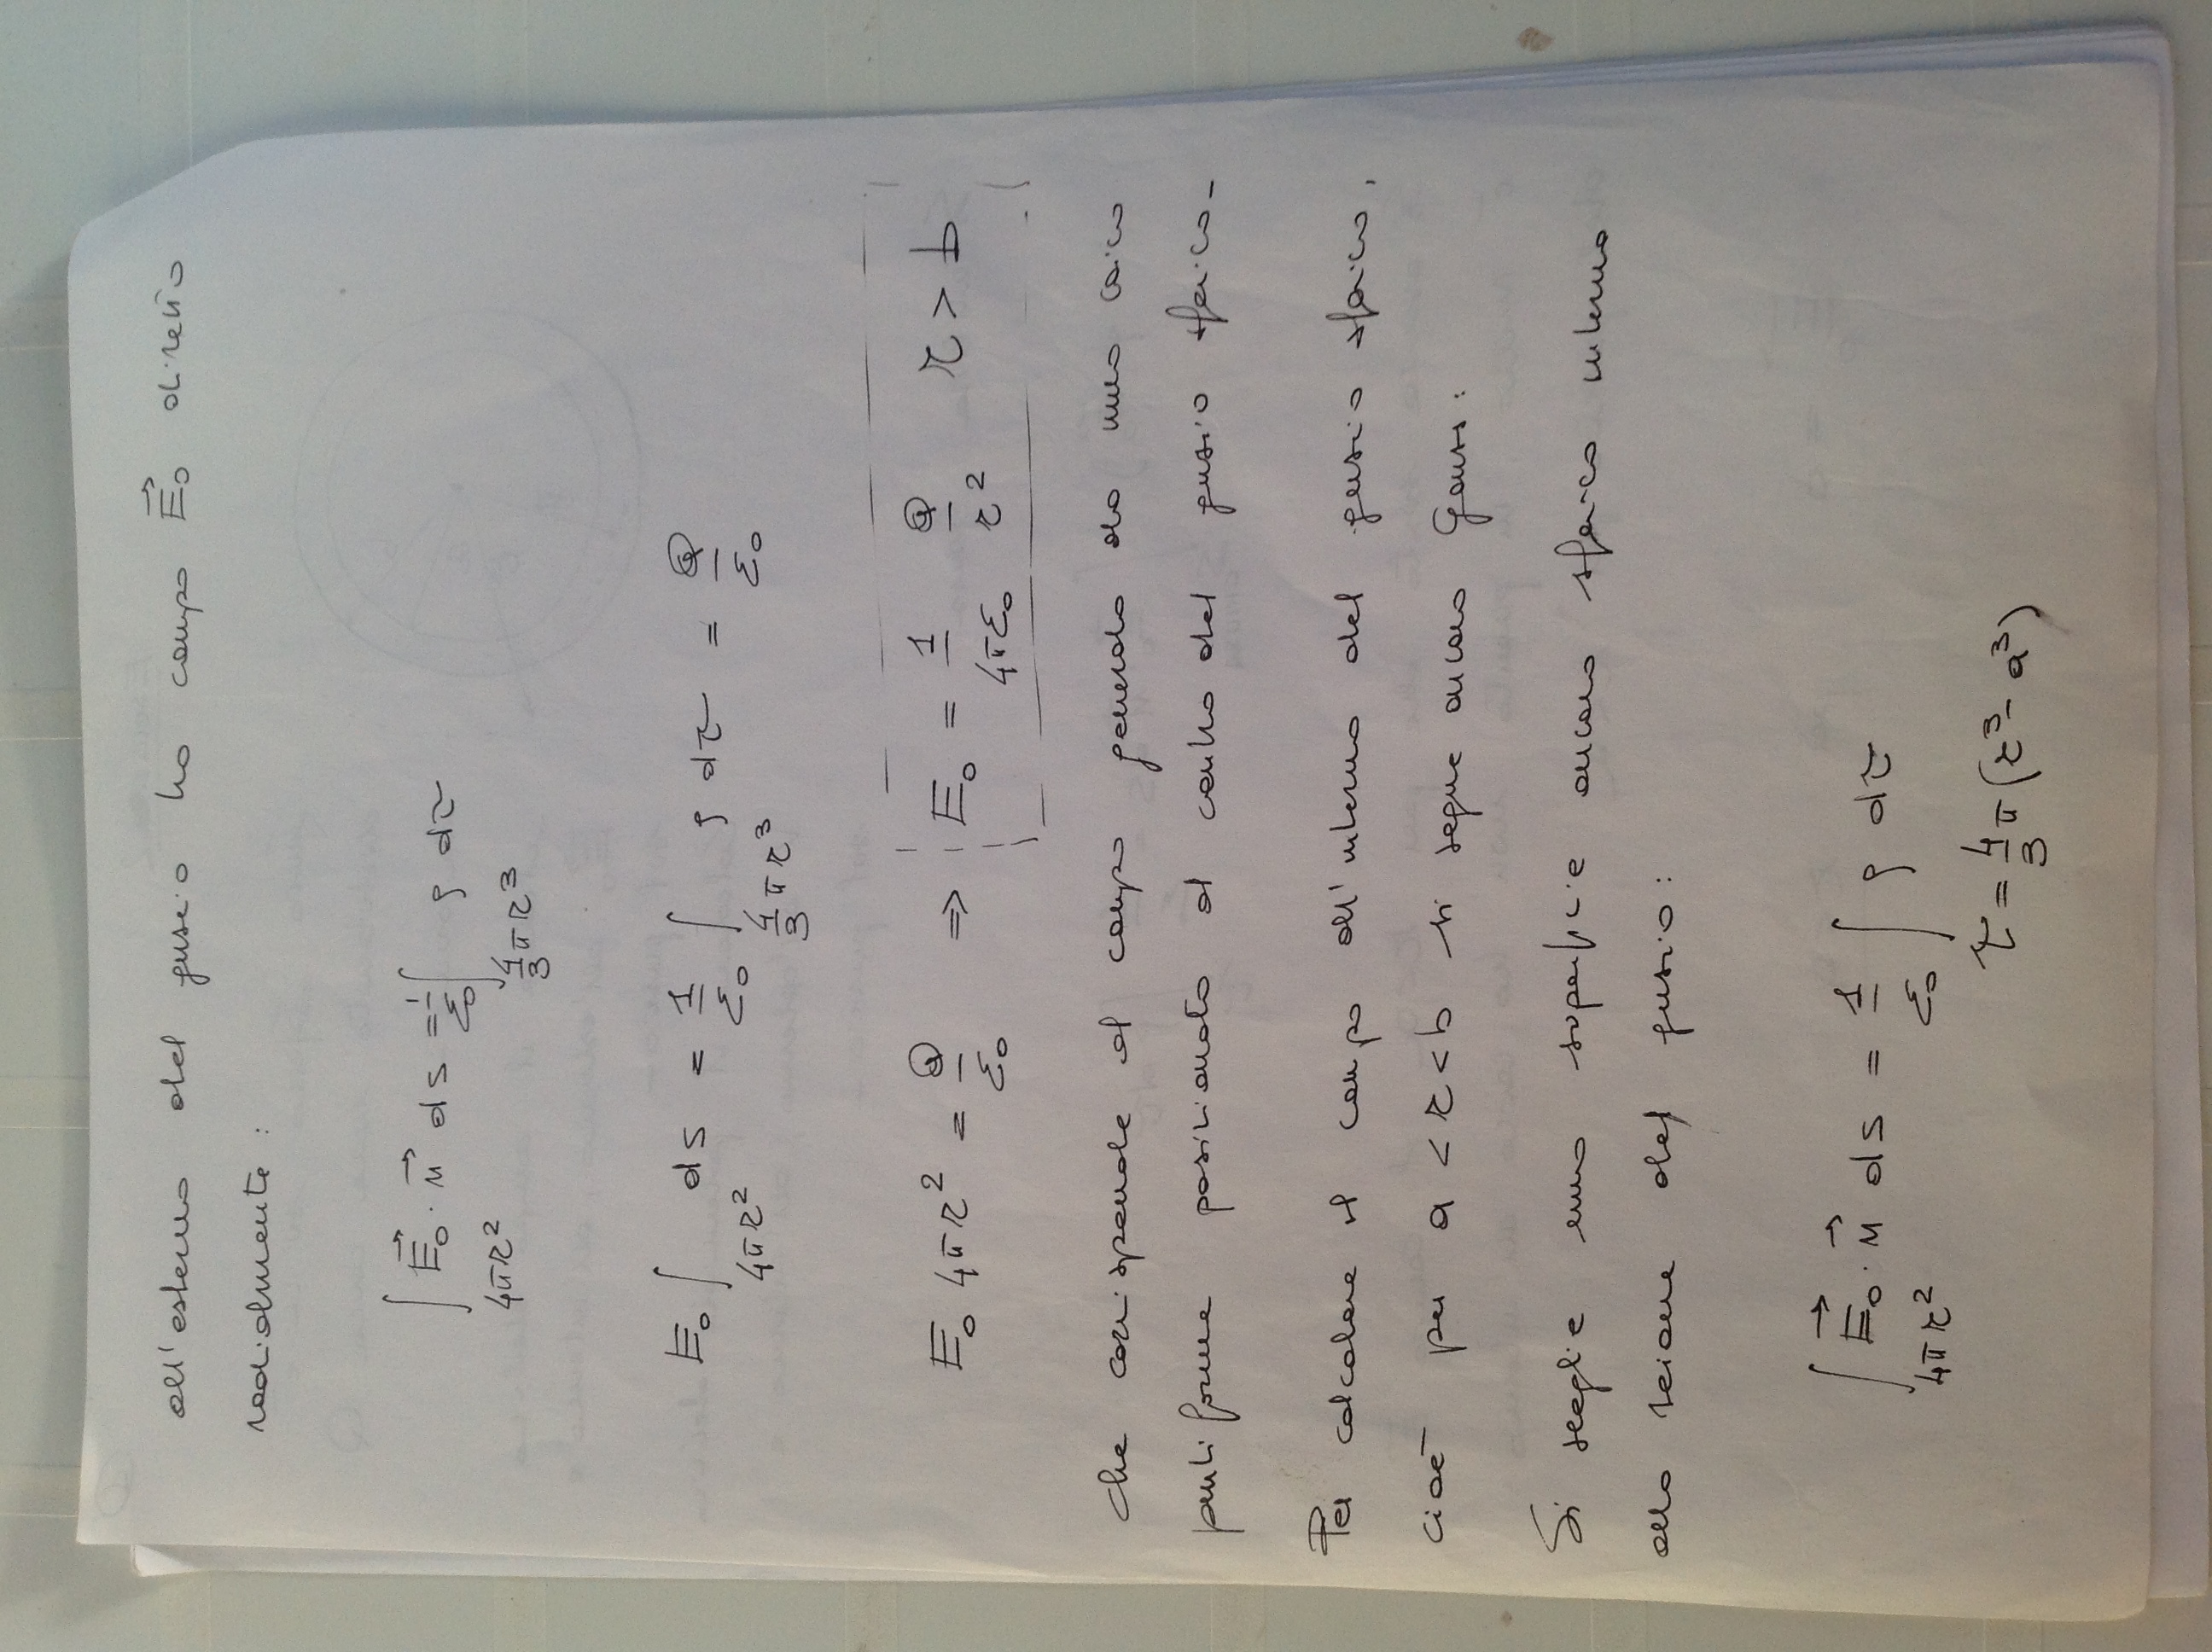 all'esterno del guscio ho campo E⃗₀ diretto
radialmente :
∫_{4πr²} E⃗₀ · n⃗ ds = 1/ε₀ ∫_{4/3 πr³} ρ dτ
E₀ ∫_{4πr²} ds = 1/ε₀ ∫_{4/3 πr³} ρ dτ = Q/ε₀
E₀ 4πr² = Q/ε₀ ⇒ E₀ = 1/4πε₀ Q/r² r > b
che corrisponde al campo generato da una carica
puntiforme posizionata al centro del guscio sferico-
Per calcolare il campo all'interno del guscio sferico,
cioè per a < r < b si segue ancora Gauss :
Si sceglie una superficie ancora sferica interna
alla sezione del guscio :
∫_{4πr²} E⃗₀ · n⃗ ds = 1/ε₀ ∫ ρ dτ
τ = 4/3 π (r³ - a³)